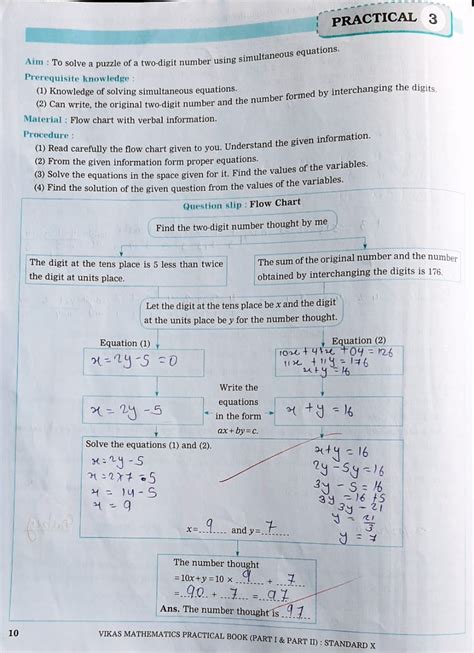 PRACTICAL 3
Aim : To solve a puzzle of a two-digit number using simultaneous equations.
Prerequisite knowledge :
(1) Knowledge of solving simultaneous equations.
(2) Can write, the original two-digit number and the number formed by interchanging the digits.
Material : Flow chart with verbal information.
Procedure :
(1) Read carefully the flow chart given to you. Understand the given information.
(2) From the given information form proper equations.
(3) Solve the equations in the space given for it. Find the values of the variables.
(4) Find the solution of the given question from the values of the variables.
Question slip : Flow Chart
Find the two-digit number thought by me
The digit at the tens place is 5 less than twice
the digit at units place.
The sum of the original number and the number
obtained by interchanging the digits is 176.
Let the digit at the tens place be x and the digit
at the units place be y for the number thought.
Equation (1)
x = 2y - 5 = 0
Equation (2)
11x + 11y = 176
x + y = 16
Write the
equations
in the form
ax + by = c.
x = 2y - 5
x + y = 16
Solve the equations (1) and (2).
x = 2y - 5
x = 2×7 - 5
x = 14 - 5
x = 9
x + y = 16
2y - 5y = 16
3y - 5 = 16
3y = 16 + 5
3y = 21
y = 21/3
y = 7
x = 9 and y = 7
The number thought
= 10x + y = 10 × 9 + 7
= 90 + 7 = 97
Ans. The number thought is 97
10
VIKAS MATHEMATICS PRACTICAL BOOK (PART I & PART II) : STANDARD X